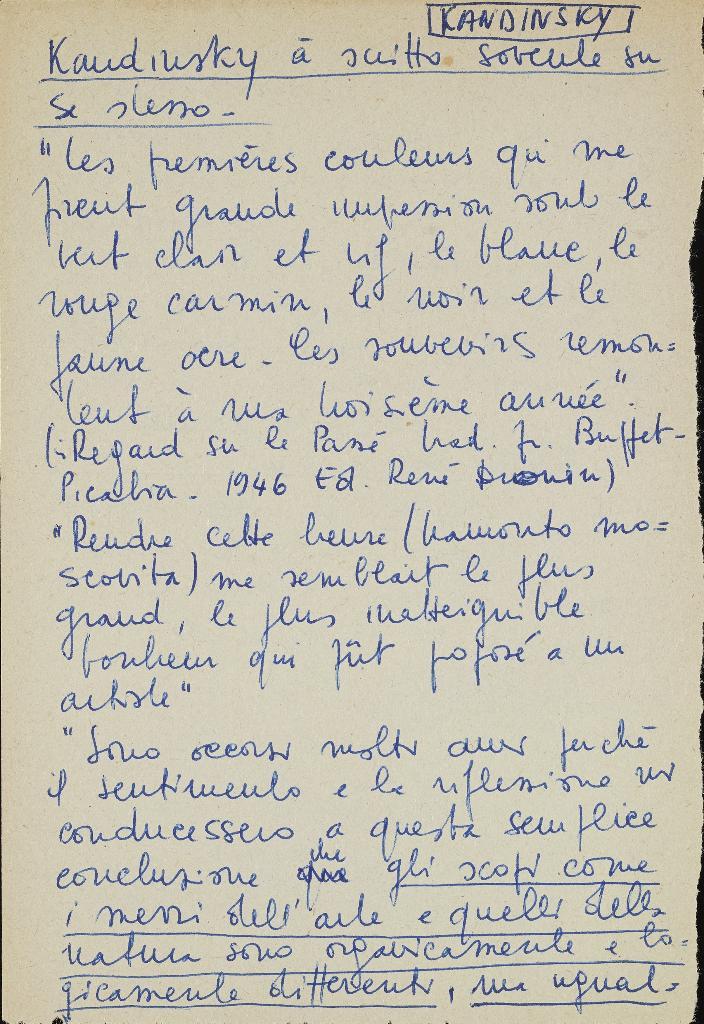 KANDINSKY
Kandinsky à scritto sovente su
se stesso -
"Les premières couleurs qui me
firent grande impression sont le
vert clair et vif, le blanc, le
rouge carmin, le noir et le
jaune ocre - Ces souvenirs remon=
tent à ma troisième année".
(: Regard sur le Passé trad. fr. Buffet-
Picabia - 1946 Ed. René Drouin)
"Rendre cette heure (tramonto mo=
scovita) me semblait le plus
grand, le plus inatteignible
bonheur qui fût proposé a un
artiste"
"Sono occorsi molti anni perché
il sentimento e la riflessione mi
conducessero a questa semplice
conclusione che gli scopi come
i mezzi dell'arte e quelli della
natura sono organicamente e lo-
gicamente differenti, ma ugual=